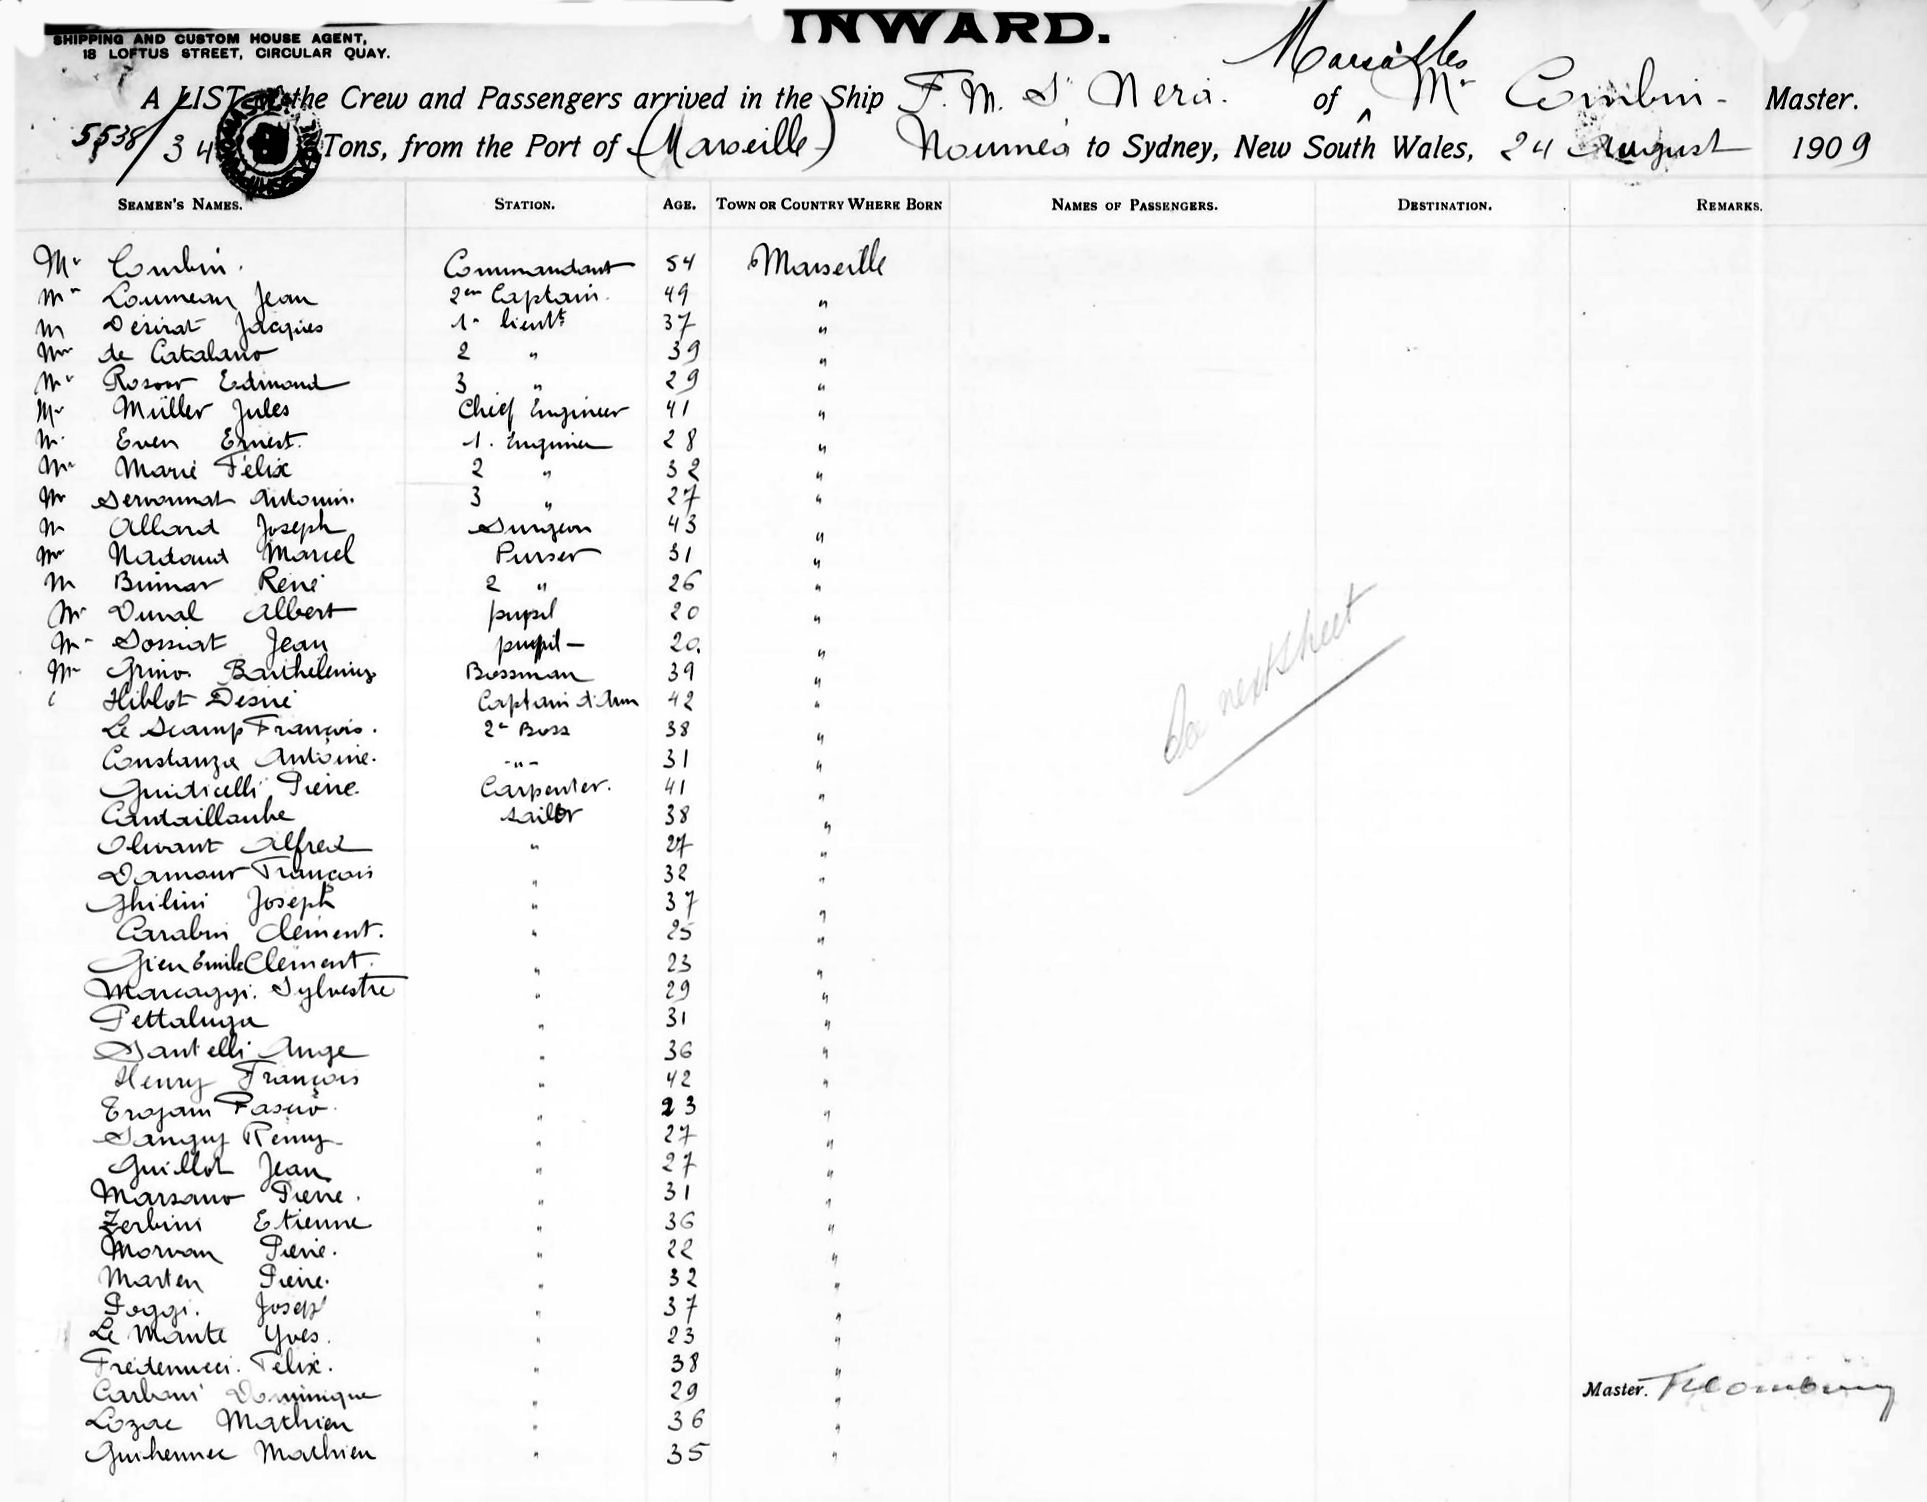 INWARD.
SHIPPING AND CUSTOM HOUSE AGENT,
18 LOFTUS STREET, CIRCULAR QUAY.
Marseilles
A LIST of the Crew and Passengers arrived in the Ship F. M. S^r Nera. of ^ M^r Combin - Master.
5538/34 Tons, from the Port of (Marseille) Nouméa to Sydney, New South Wales, 24 August 1909
SEAMEN'S NAMES. STATION. AGE. TOWN OR COUNTRY WHERE BORN NAMES OF PASSENGERS. DESTINATION. REMARKS.
Mr Combin. Commandant 54 Marseille
Mr Loumeau Jean 2en Captain. 49 "
M Désirat Jacques 1r lieutt 37 "
Mr de Catalano 2 " 39 "
Mr Edmond 3 " 29 "
Mr Müller Jules Chief Engineer 41 "
M. Even Ernest. 1. Enginier 28 "
Mr Marié Félix 2 " 32 "
Mr Servonnat Antonin. 3 " 27 "
M Allard Joseph Surgeon 43 "
Mr Nadaud Marcel Purser 31 "
M René 2 " 26 "
Mr Duval Albert pupil 20 "
Mr Sossiat Jean pupil — 20. "
Mr Grino Barthelemy Bossman 39 "
Hiblot Désiré Captain d'Arm 42 "
Le Scamp François. 2e Boss 38 "
Constanza Antoine. -"- 31 "
Guidicelli Pierre. Carpenter. 41 "
Cantaillaube sailor 38 "
Olivant Alfred " 27 "
Damour François " 32 "
Ghilini Joseph " 37 "
Carabin Clément. " 25 "
Gien Emile Clément. " 23 "
Marcaggi. Sylvestre " 29 "
Pettaluga " 31 "
Santelli Ange " 36 "
Henry François " 42 "
Trojani " 23 "
Sanguy Remy " 27 "
Guillot Jean " 27 "
Marsano Pierre. " 31 "
Zerbini Etienne " 36 "
Morvan Pierre. " 22 "
Marten Pierre. " 32 "
Poggi. Joseph " 37 "
Le Mante Yves. " 23 "
Fredenucci. Félix. " 38 "
Carboni Dominique " 29 "
Lozac Mathieu " 36 "
Guihennec Mathieu " 35 "
next sheet
Master.